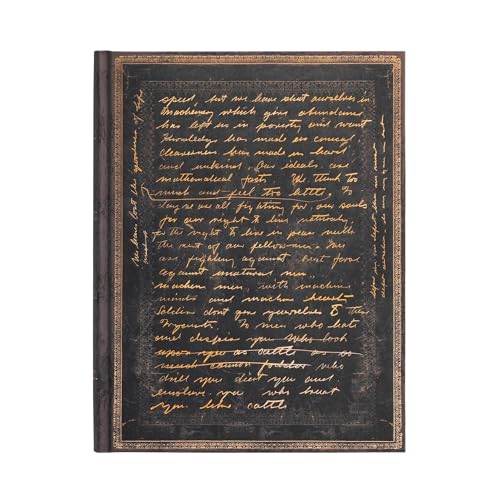 speed, but we have shut ourselves in
Machinery which gives abundance
has left us in poverty and want
Knowledge has made us
Cleverness has made us hard
and unkind. Our ideals are
mathematical facts. We think to
much and feel too little. To
day we are all fighting for our souls
for our right to live naturally
for the right to live in peace
the rest of our fellow men. You
are fighting against
against unnatural men,
machine men, with machine
minds and machine hearts
Soldiers dont give yourselves to these
To men who hate
and despise you who look
upon you as cattle as so
much cannon fodder who
drill you diet you and
enslave you who treat
you like cattle
We have lost the